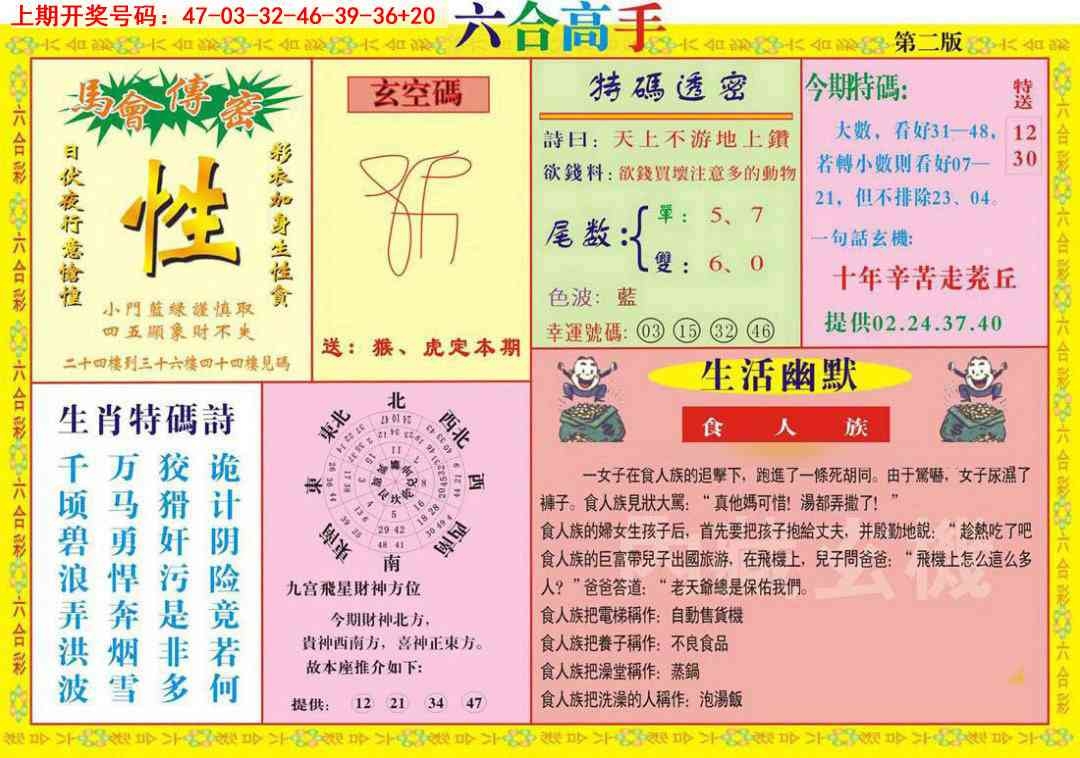 上期开奖号码：47-03-32-46-39-36+20
六合高手
第二版
馬會傳密
日伏夜行意愴惶
性
彩衣加身生性貪
小門藍緑謹慎取
四五顯象財不失
二十四樓到三十六樓四十四樓見碼
玄空碼
送：猴、虎定本期
特碼透密
詩曰：天上不游地上鑽
欲錢料：欲錢買壞注意多的動物
尾数：
單：5、7
雙：6、0
色波：藍
幸運號碼：03 15 32 46
今期特碼:
特送
12
30
大數，看好31—48，
若轉小數則看好07—
21，但不排除23、04。
一句話玄機:
十年辛苦走茺丘
提供02.24.37.40
生肖特碼詩
诡计阴险竟若何
狡猾奸污是非多
万马勇悍奔烟雪
千顷碧浪弄洪波
北
東北
西北
東
西
東南
西南
南
九宫飛星財神方位
今期財神北方，
貴神西南方，喜神正東方。
故本座推介如下:
提供: 12 21 34 47
生活幽默
食人族
一女子在食人族的追擊下，跑進了一條死胡同。由于驚嚇，女子尿濕了
褲子。食人族見狀大駡：“真他媽可惜！湯都弄撒了！”
食人族的婦女生孩子后，首先要把孩子抱給丈夫，并殷勤地説：“趁熱吃了吧
食人族的巨富帶兒子出國旅游，在飛機上，兒子問爸爸：“飛機上怎么這么多
人？”爸爸答道：“老天爺總是保佑我們。
食人族把電梯稱作：自動售貨機
食人族把養子稱作：不良食品
食人族把澡堂稱作：蒸鍋
食人族把洗澡的人稱作：泡湯飯